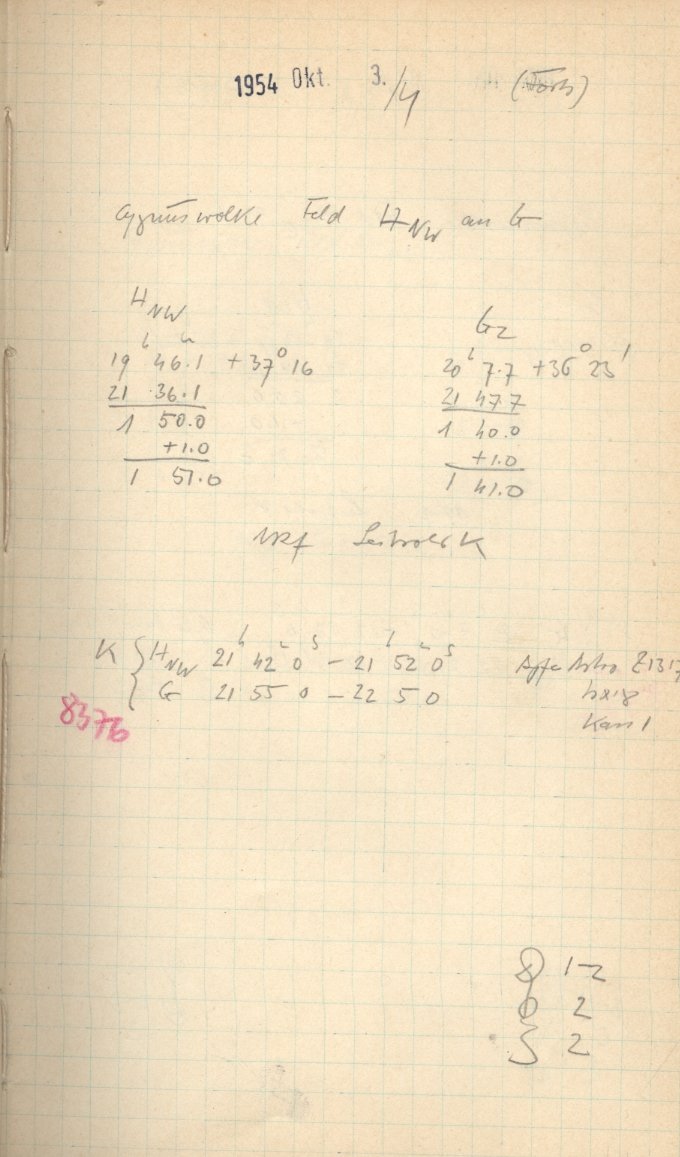 1954 Okt. 3./4
Cygnuswolke Feld H_NW an G
H_NW
19^h 46.1 +37° 16
21 36.1
1 50.0
+1.0
1 51.0
G2
20^h 7.7 +36° 23'
21 47.7
1 40.0
+1.0
1 41.0
K { H_NW 21^h 42 0^s – 21^h 52 0^s
G 21 55 0 – 22 5 0
Agfa Astro Z1317
Kass 1
8376
1-2
2
2